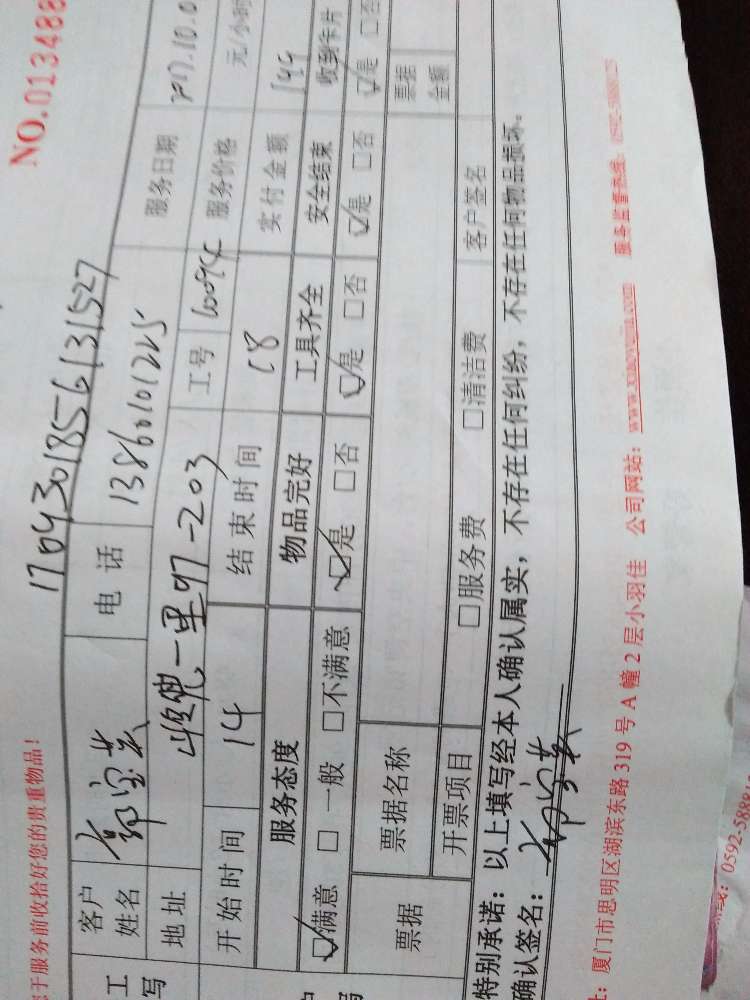 NO.013488
于服务前收拾好您的贵重物品！
1704301856131527
工
写
客户
姓名 郭宝英 电话 13860101225 服务日期 2017.10.0
地址 一里97-203 工号 服务价格 元/小时
开始时间 14 结束时间 18 实付金额 144
服务态度 物品完好 工具齐全 安全结束 收到卡片
☑满意 □一般 □不满意 ☑是 □否 ☑是 □否 ☑是 □否 ☑是 □否
票据 票据名称 票据
金额
开票项目 □服务费 □清洁费 客户签名
特别承诺：以上填写经本人确认属实，不存在任何纠纷，不存在任何物品损坏。
确认签名：郭宝英
址：厦门市思明区湖滨东路 319 号 A 幢 2 层小羽佳 公司网站： 服务监督热线：
0592-5888